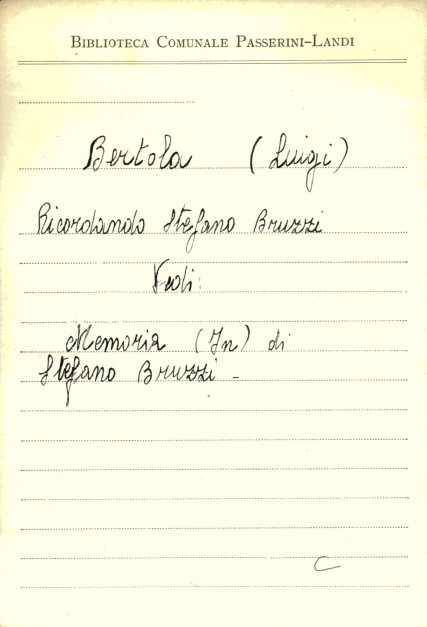 BIBLIOTECA COMUNALE PASSERINI-LANDI
Bertola (Luigi)
Ricordando Stefano Bruzzi
Vedi:
Memoria (In) di
Stefano Bruzzi -
C